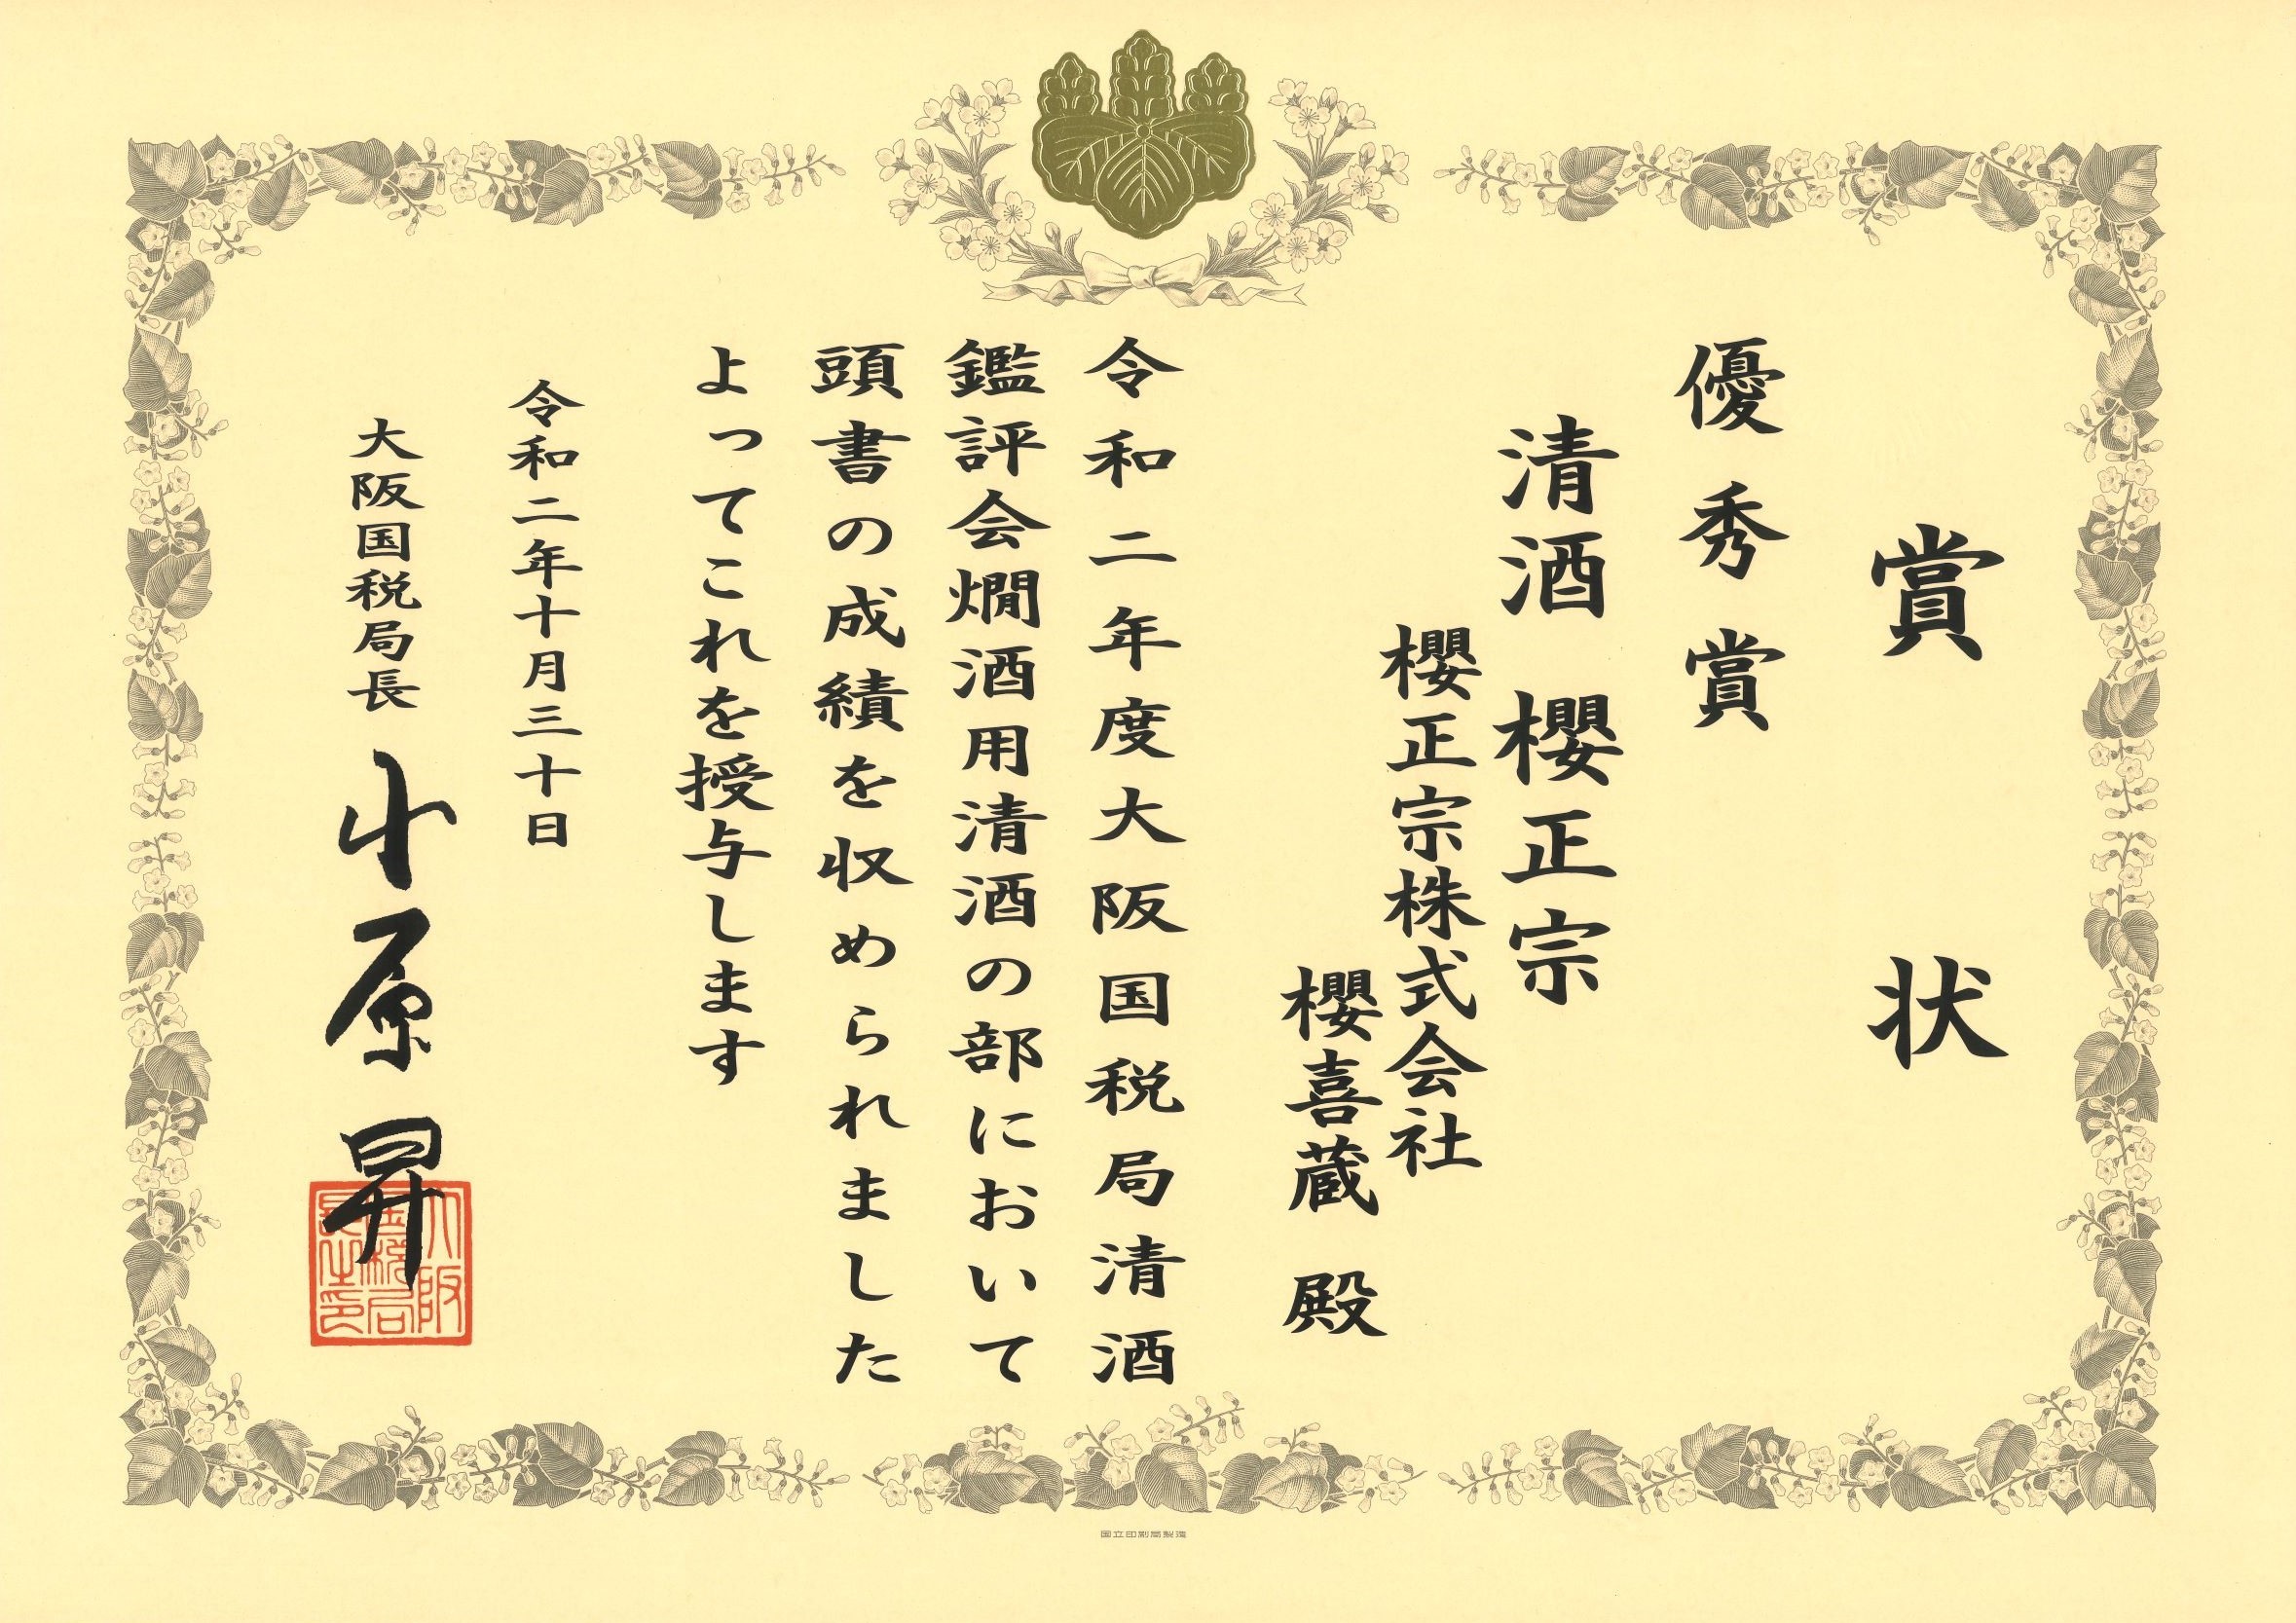 賞状
優秀賞
清酒 櫻正宗
櫻正宗株式会社
櫻喜蔵 殿
令和二年度大阪国税局清酒
鑑評会燗酒用清酒の部において
頭書の成績を収められました
よってこれを授与します
令和二年十月三十日
大阪国税局長 小原 昇
大阪国税局長之印
国立印刷局製造